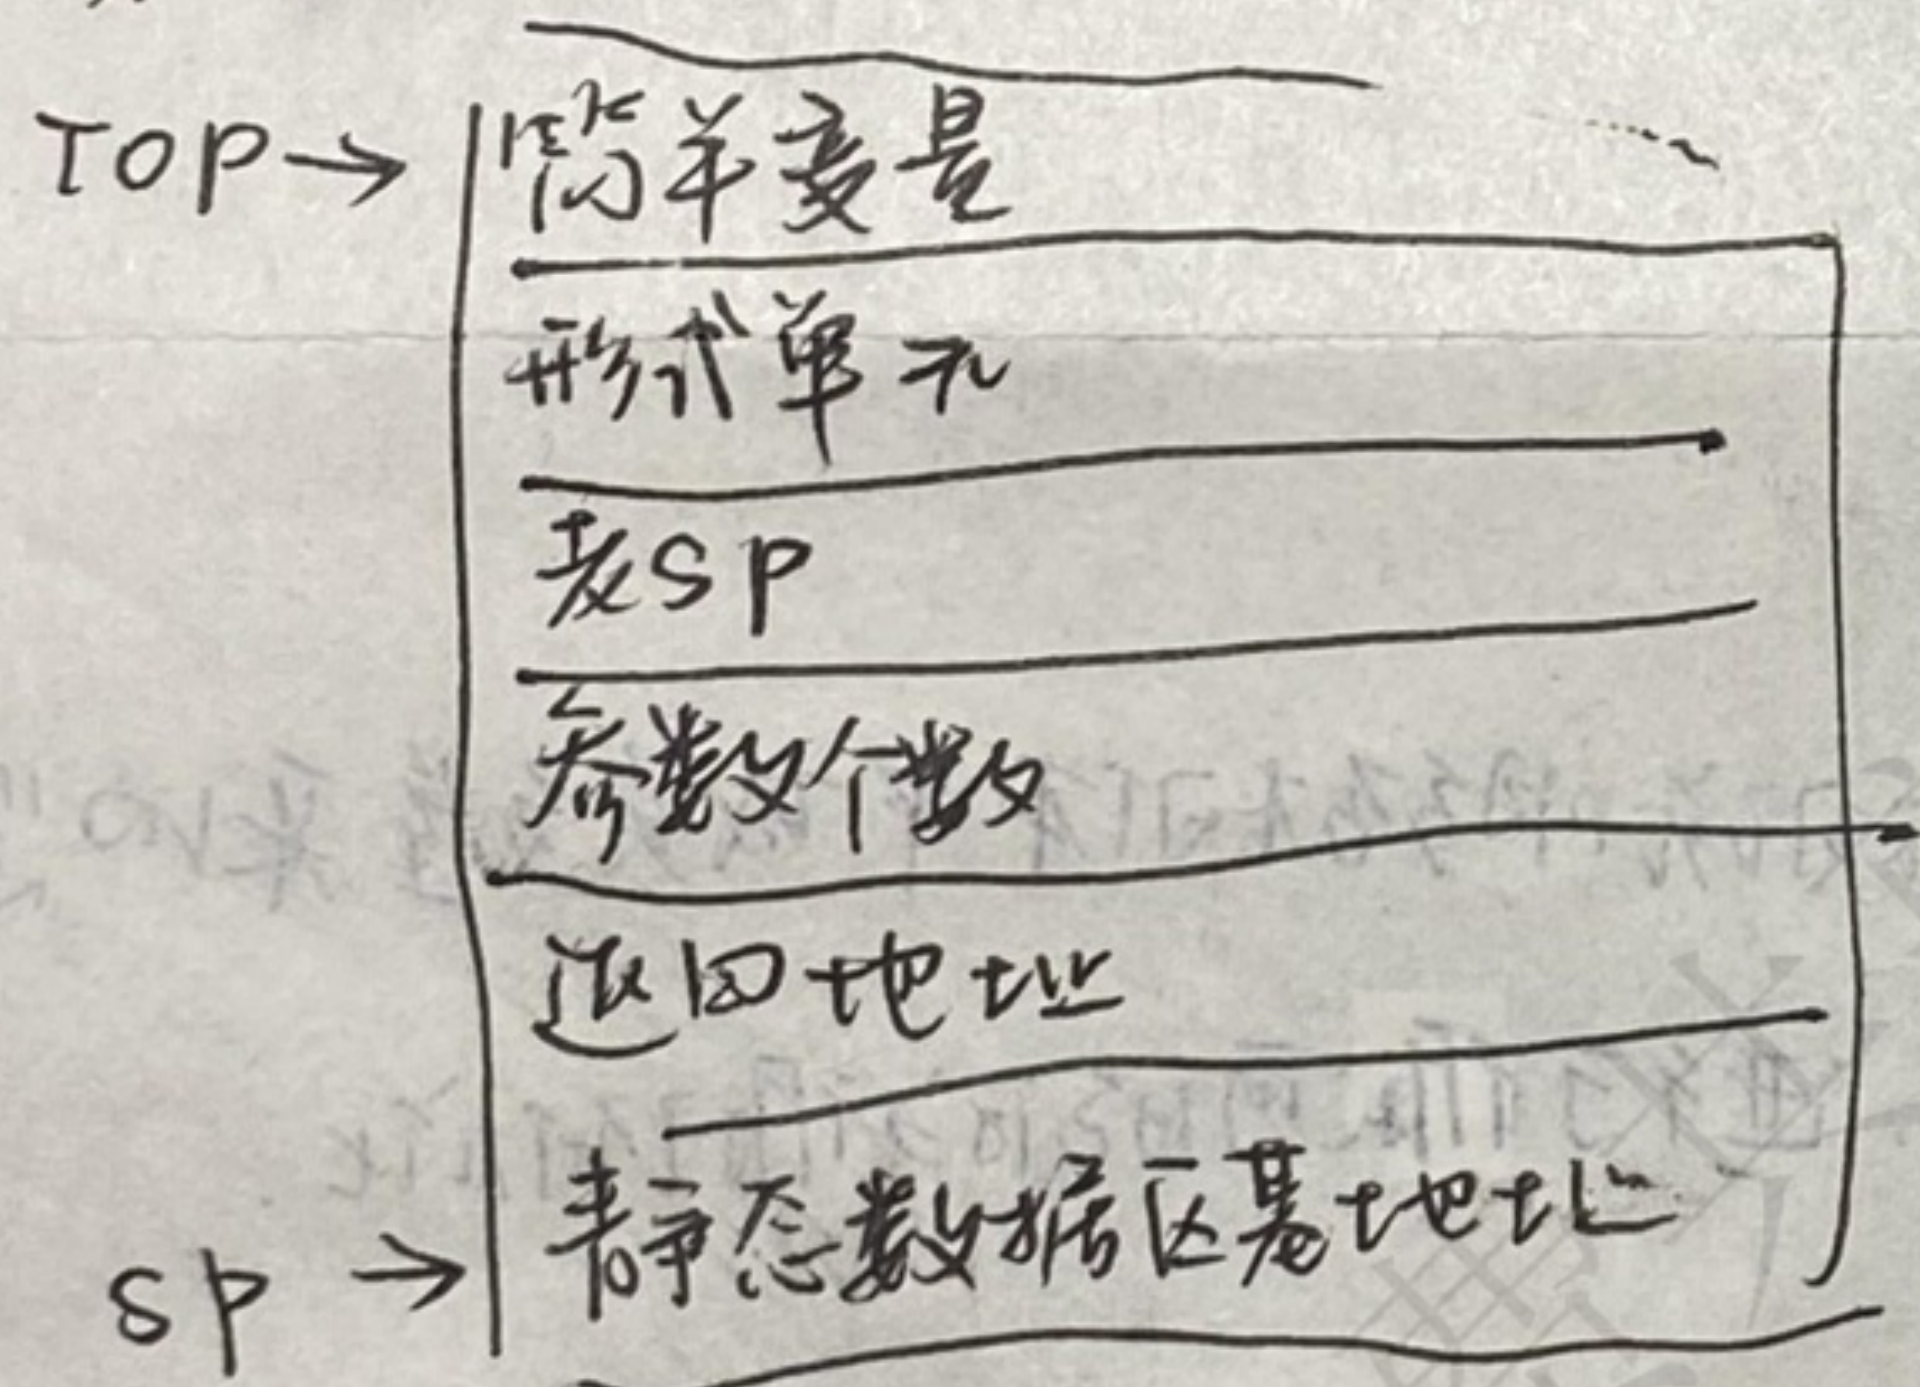 TOP→ 简单变量
形式单元
老SP
参数个数
返回地址
SP → 静态数据区基地址